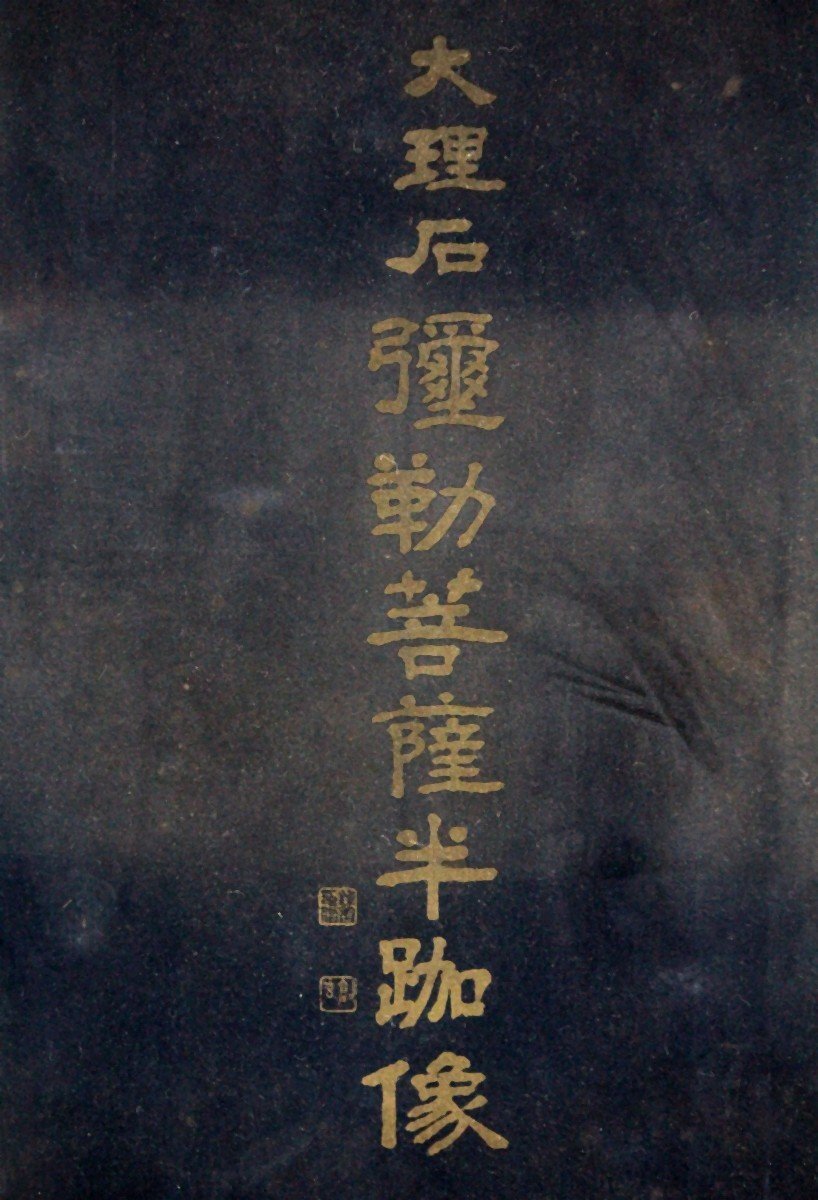 大理石彌勒菩薩半跏像